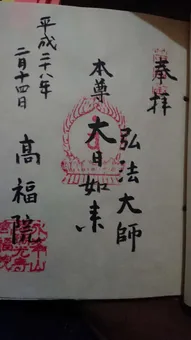 奉拝
弘法大師
本尊
大日如来
高福院
平成二十八年
二月十四日